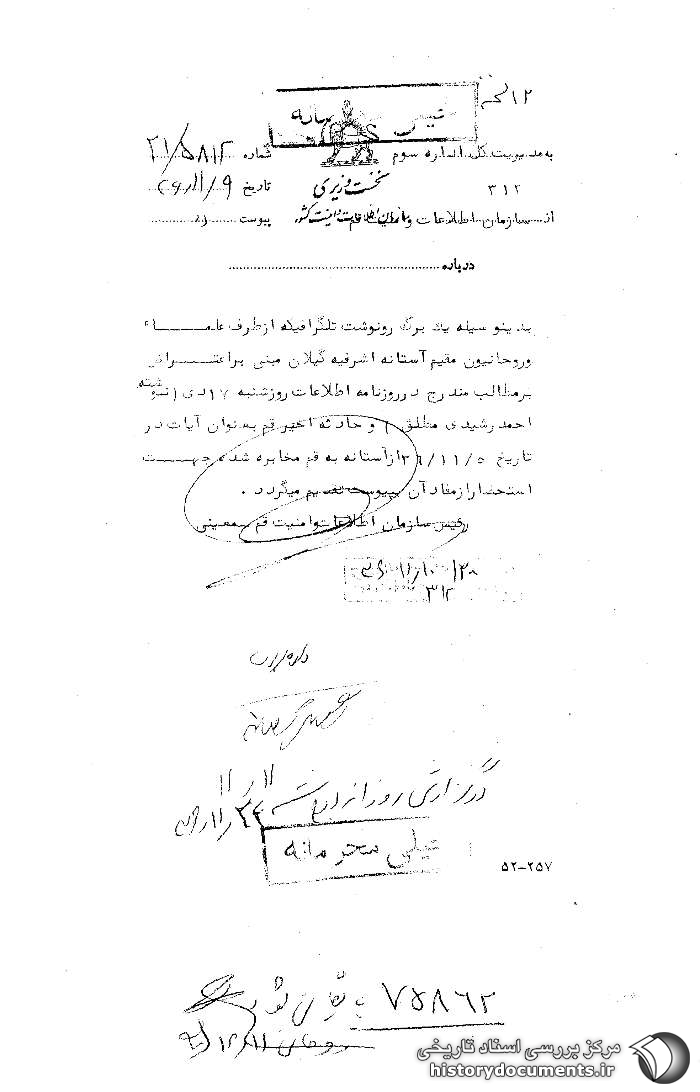 خیلی محرمانه
به مدیریت کل اداره سوم شماره ۲۱/۵۸۱۲
۳۱۲ نخست وزیری تاریخ
از سازمان اطلاعات و امنیت قم سازمان اطلاعات و امنیت کشور پیوست دارد
درباره
بدینوسیله یک برگ رونوشت تلگرافیکه از طرف علماء
و روحانیون مقیم آستانه اشرفیه گیلان مبنی بر اعتراض
بر مطالب مندرج در روزنامه اطلاعات روز شنبه ۱۷ دی ( نوشته
احمد رشیدی مطلق ) و حادثه اخیر قم بعنوان آیات در
تاریخ ۳۶/۱۱/۵ از آستانه به قم مخابره شده جهت
استحضار از مفاد آن بپیوست تقدیم میگردد .
رئیس سازمان اطلاعات و امنیت قم معینی
۳۱۲
در گزارش روزانه درج شد
خیلی محرمانه
۵۲-۲۵۷
۷۵۸۶۲ بایگانی شود
مرکز بررسی اسناد تاریخی
historydocuments.ir